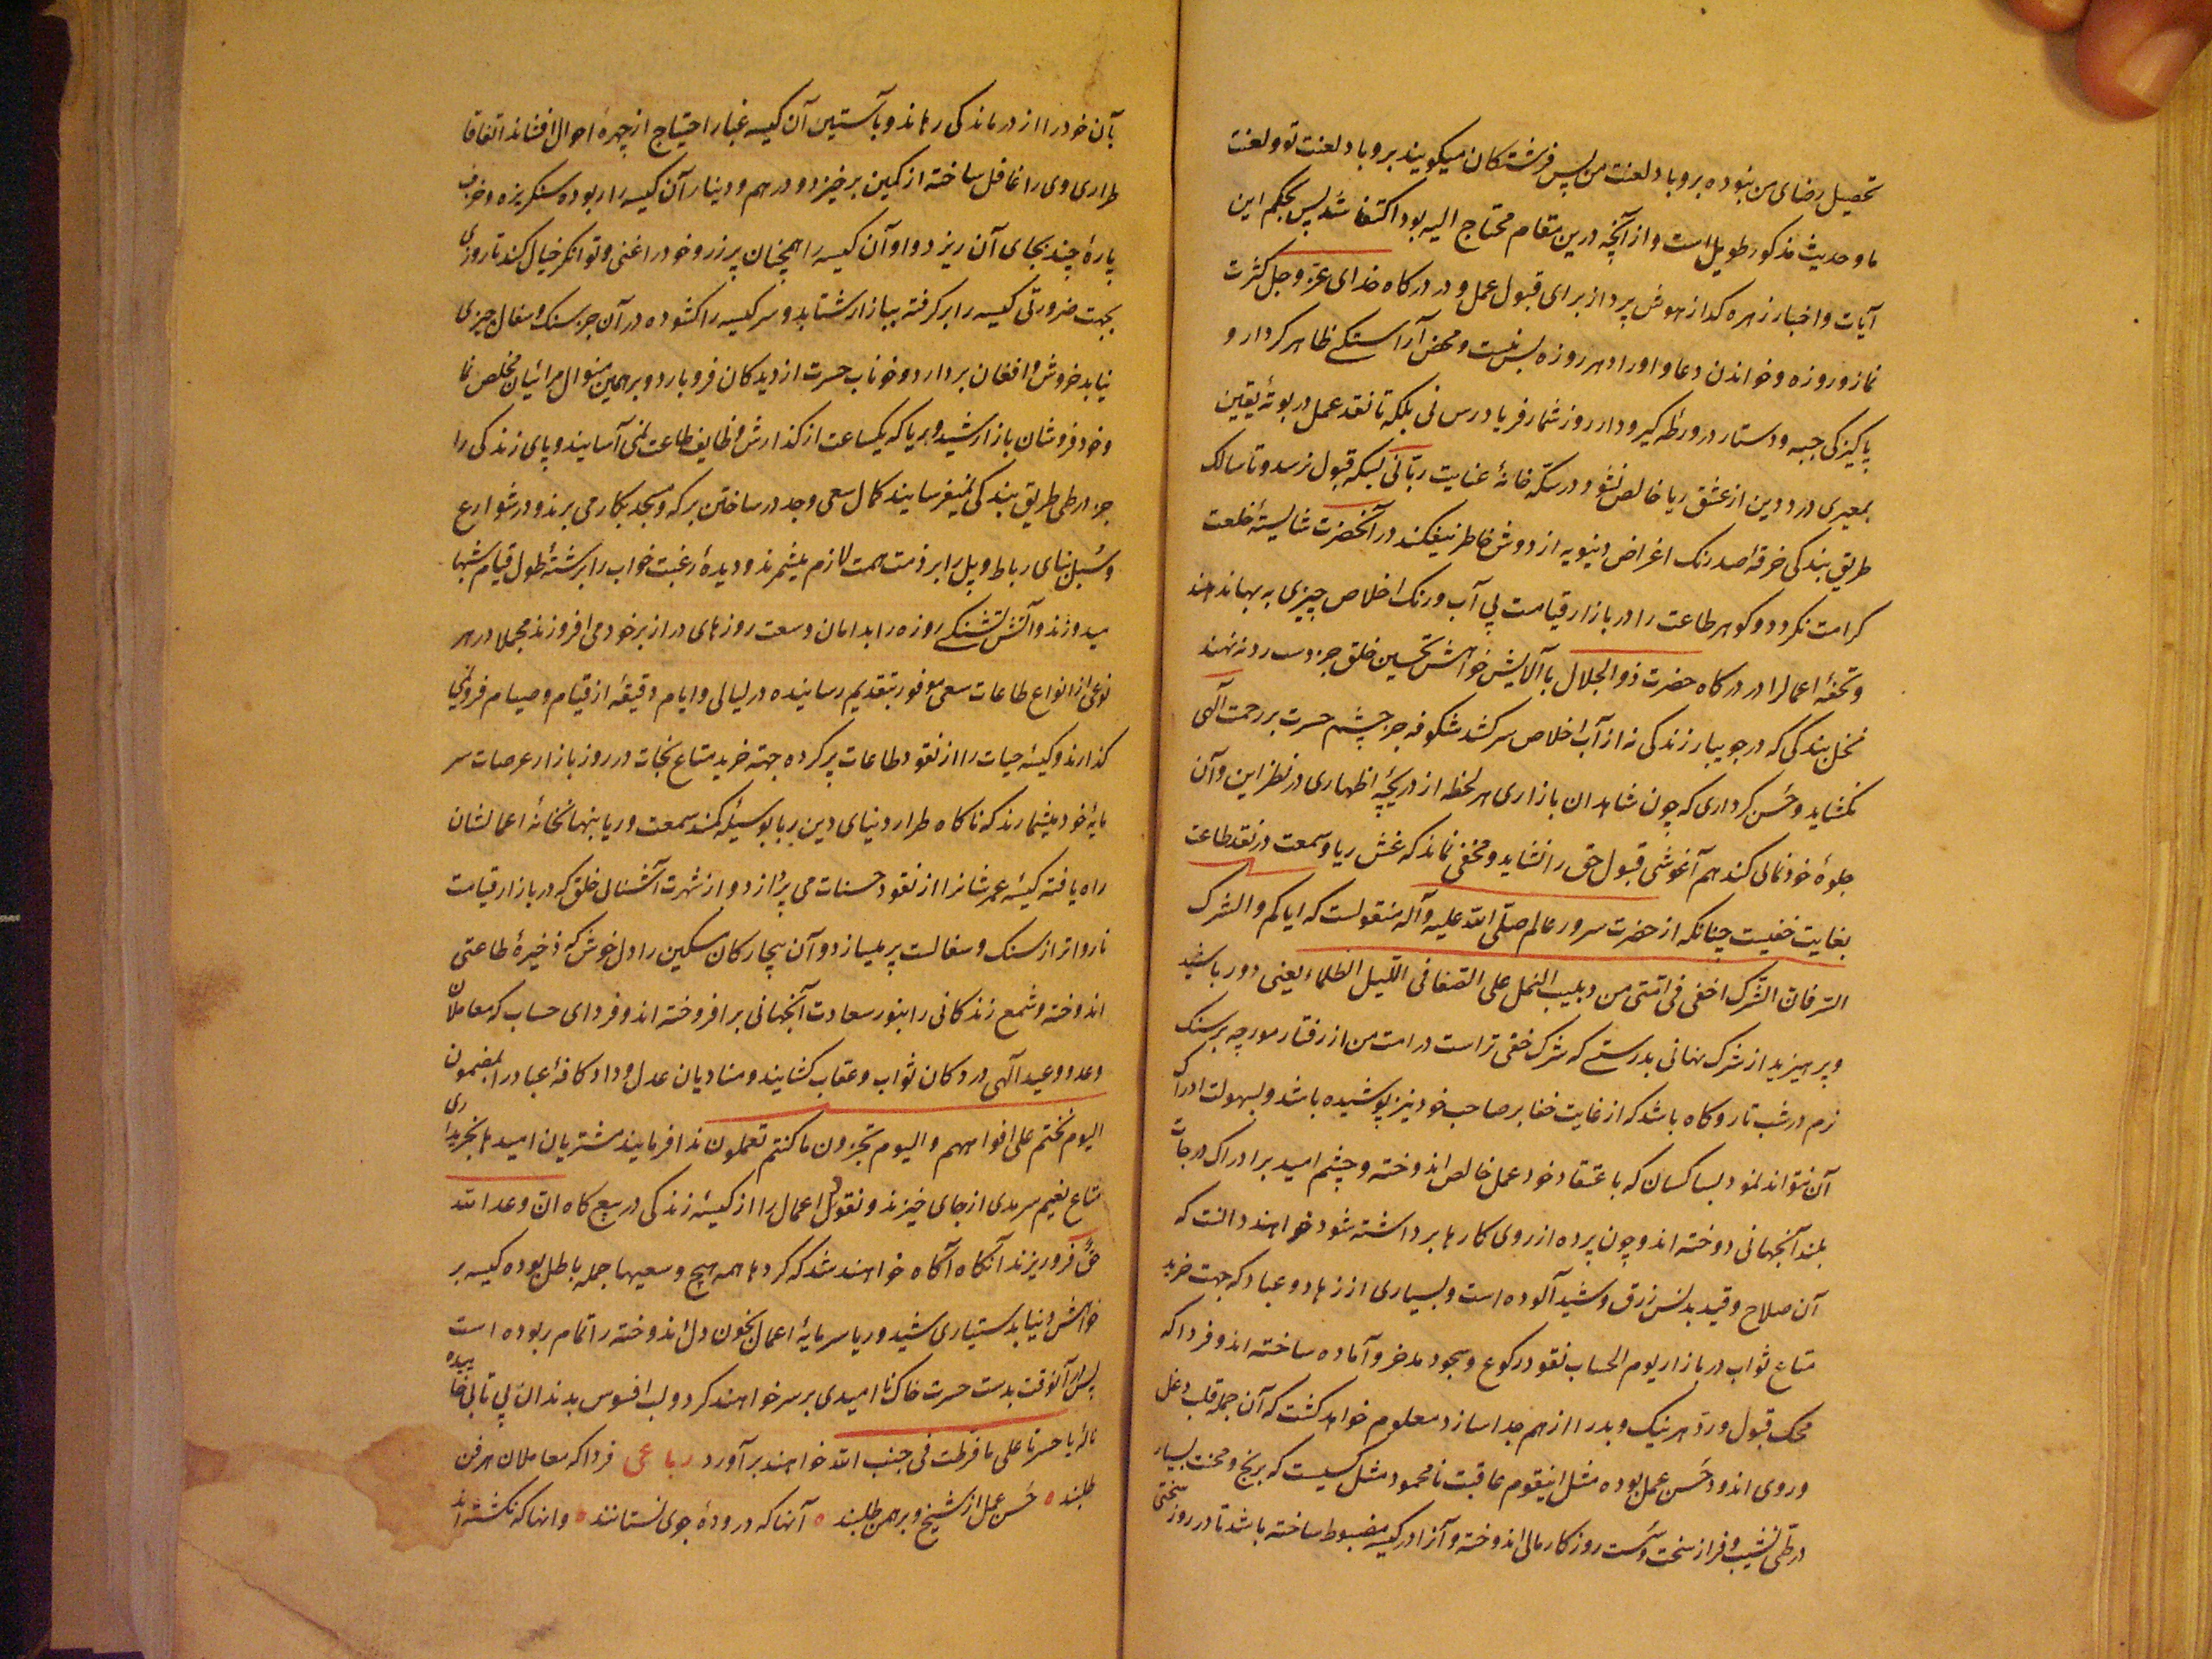 تحصیل رضای من نبوده برو باد لعنت من پس فرشتگان میگویند برو باد لعنت تو و لعنت
ما و حدیث مذکور طویل است و از آنچه درین مقام محتاج الیه بود اکتفا شد پس بحکم این
آیات و اخبار زهره کداز هوش پرداز برای قبول عمل و در درکاه خدای عز و جل کثرت
نماز و روزه و خواندن دعا و اوراد هر روزه بس نیست و محض آراستکی ظاهر کردار و
پاکیزکی جبه و دستار در ورطه کیر و دار روز شمار فریادرس نی بلکه تا نقد عمل در بوتهٔ یقین
بمعیری درد دین از غش ریا خالص نشود در سکه خانهٔ عنایت ربانی بسکه قبول نرسد و تا سالک
طریق بندکی خرقهٔ صد رنک اغراض دنیویه از دوش خاطر نیفکند در آنحضرت شایستهٔ خلعت
کرامت نکردد و کوهر طاعت را در بازار قیامت بی آب و رنک اخلاص چیزی به بها ندهند
و تحفهٔ اعمال را در درکاه حضرت ذو الجلال با آلایش خواهش تحسین خلق جز دست رد نه نهند
نخل بندکی که در جویبار زندکی نه از آب اخلاص سر کشد شکوفه جز چشم حسرت بر رحمت آلهی
نکشاید و حسن کرداری که چون شاهدان بازاری هر لحظه از دریچهٔ اظهاری در نظر این و آن
جلوهٔ خودنمائی کند هم آغوشی قبول حق را نشاید و مخفی نماند که غش ریا و سمعت در نقد طاعت
بغایت خفیست چنانکه از حضرت سرور عالم صلی الله علیه و آله منقولست که ایاکم و الشرک
السر فان الشرک اخفی فی امتی من دبیب النمل علی الصفا فی اللیل الظلماء یعنی دور باشید
و پرهیزید از شرک نهانی بدرستی که شرک خفی تر است در امت من از رفتار مورچه بر سنک
نرم در شب تار و کاه باشد که از غایت خفا بر صاحب خود نیز پوشیده باشد و بسهولت ادراک
آن نتواند نمود بسا کسان که باعتقاد خود عمل خالص اندوخته و چشم امید بر ادراک درجات
بلند آنجهانی دوخته اند و چون پرده از روی کارها برداشته شود خواهند دانست که
آن صلاح و قید بدلس زرق و شید آلوده است و بسیاری از زهاد و عباد که جهت خرید
متاع ثواب در بازار یوم الحساب نقود رکوع و سجود مدخر و آماده ساخته اند و فردا که
محک قبول و رد هر نیک و بد را از هم جدا سازد معلوم خواهد کشت که آن جمله قلب دغل
و روی اندود حسن عمل بوده مثل اینقوم عاقبت نامحمود مثل کسیست که برنج و محنت بسیار
در طی نشیب و فراز سخت و سست روزکار مالی اندوخته و آنرا در کیسه مضبوط ساخته باشد تا در روز سختی
بآن خود را از درماندکی رهاند و بآستین آن کیسه غبار احتیاج از چهرهٔ احوال افشاند اتفاقا
طراری وی را غافل ساخته از کمین برخیزد و درهم و دینار آن کیسه را ربوده سنکریزه و خزف
پارهٔ چند بجای آن ریزد و او آن کیسه را همچنان پر زر و خود را غنی و توانکر خیال کند تا روزی
بجهت ضرورتی کیسه را بر کرفته ببازار شتابد و سر کیسه را کشوده در آن جز سنک و سفال چیزی
نیابد خروش و افغان بردارد و خوناب حسرت از دیدکان فرو بارد و برهمین منوال مرائیان مخلص نما
و خود فروشان بازار شید و ریا که یکساعت از کذارش وظایف طاعت نمی آسایند و پای زندکی را
جز در طی طریق بندکی نمیفرسایند کمال سعی و جد در ساختن برکه و مسجد بکار می برند و در شوارع
و سبل بنای رباط و پل را بر ذمت همت لازم میشمرند و دیدهٔ رغبت خواب را برشتهٔ طول قیام شبها
میدوزند و آتش تشنکی روزه را بدامان وسعت روزهای دراز بر خود می افروزند مجملا در هر
نوعی از انواع طاعات سعی موفور بتقدیم رسانیده در لیالی و ایام دقیقهٔ از قیام و صیام فرو نمی
کذارند و کیسهٔ حیات را از نقود طاعات پر کرده جهته خرید متاع نجات در روز بازار عرصات سر
مایهٔ خود میشمارند که ناکاه طرار دنیای دین ربا بوسیلهٔ کمند سمعت و ریا بنهانخانهٔ اعمالشان
راه یافته کیسهٔ عمرشانرا از نقود حسنات می پردازد و از شهرت آشنائی خلق که در بازار قیامت
نارواتر از سنک و سفالست پر میسازد و آن بیچارکان مسکین را دل خوش که ذخیرهٔ طاعتی
اندوخته و شمع زندکانی را بنور سعادت آنجهانی بر افروخته اند و فردای حساب که معاملان
وعد و وعید آلهی در دکان ثواب و عقاب کشایند و منادیان عدل و داد کافهٔ عباد را بمضمون
الیوم نختم علی افواههم و الیوم تجزون ما کنتم تعملون ندا فرمایند مشتریان امید ها بخریداری
متاع نعیم سرمدی از جای خیزند و نقود اعمال را از کیسهٔ زندکی در بیع کاه ان وعد الله
حق فرو ریزند آنکاه آکاه خواهند شد که کردها همه هیچ و سعیها جمله باطل بوده کیسه بر
خواهش دنیا بدستیاری شید و ریا سرمایهٔ اعمال بخون دل اندوخته را تمام ربوده است
پس در آنوقت بدست حسرت خاک ناامیدی بر سر خواهند کرد و لب افسوس بدندان بی تابی خاییده
نالهٔ یا حسرتا علی ما فرطت فی جنب الله خواهند برآورد رباعی فردا که معاملان هر فن
طلبند ۰ حسن عمل از شیخ و برهمن طلبند ۰ آنها که درودهٔ جوی نستانند ۰ و انها که نکشتهٔ اند